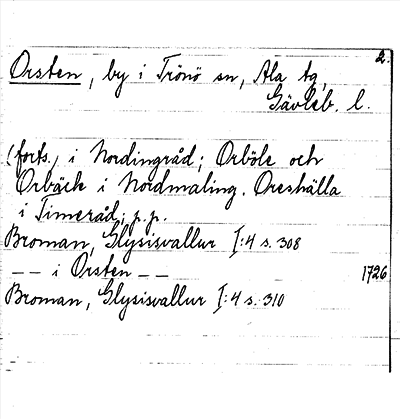 2.
Orsten, by i Trönö sn, Ala tg,
Gävleb. l.
(forts.) i Nordingråd; Orböle och
Orbäck i Nordmaling. Oreshälla
i Timeråd; p.p.
Broman, Glysisvallur I:4 s. 308
-- i Orsten -- 1726
Broman, Glysisvallur I:4 s. 310